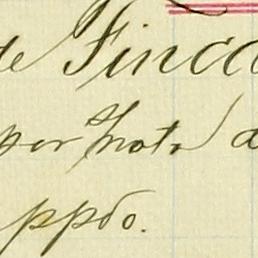 de Finca
por Nota d
ppdo.